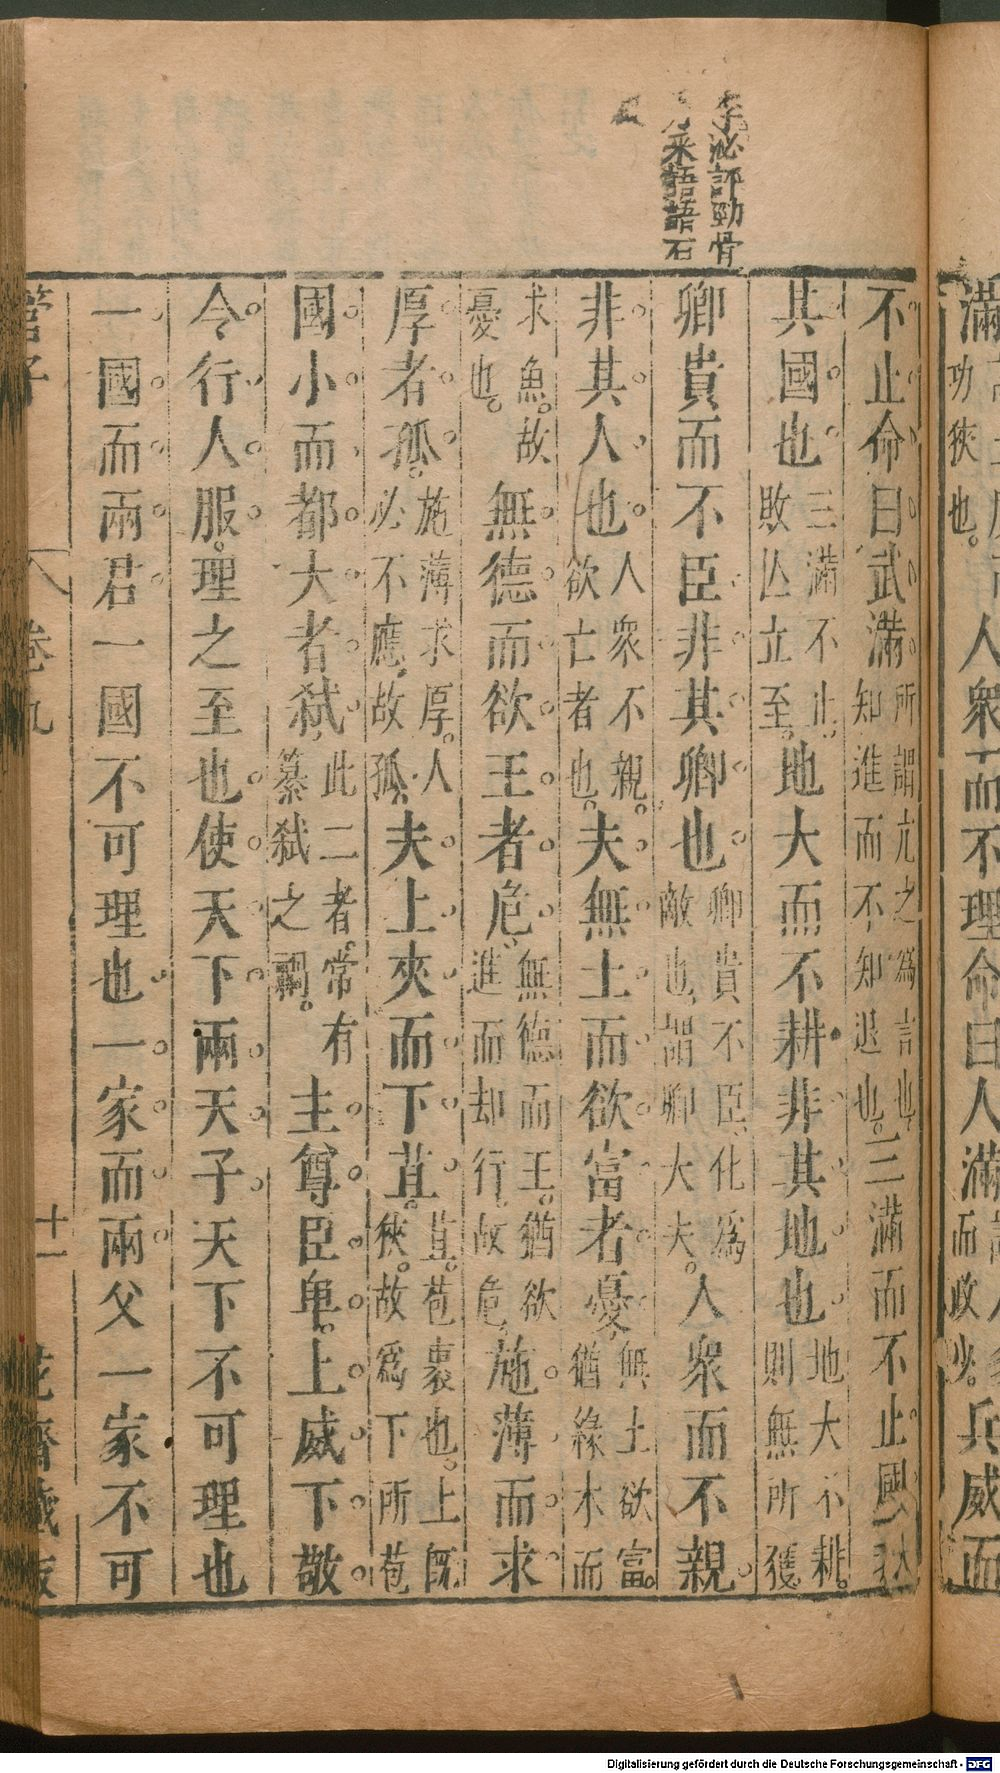 滿 人衆而不理命曰人滿 兵威而
功狹也。
不止命曰武滿所謂亢之爲言也知進而不知退也。三滿而不止國
其國也三滿不止。敗亾立至。地大而不耕非其地也地大不耕。則無所獲。
卿貴而不臣非其卿也卿貴不臣、化爲敵也、謂卿大夫。人衆而不親
非其人也人衆不親。欲亡者也。夫無土而欲富者憂無土欲富。猶緣木而
求魚。故憂也。無德而欲王者危無德而王。猶欲進而却行。故危。施薄而求
厚者孤。施薄求厚。人必不應、故孤。夫上夾而下苴。苴。苞裹也。上既狹。故爲下所苞
國小而都大者弑此二者。常有篡弑之禍。主尊臣卑。上威下敬
令行人服。理之至也使天下兩天子天下不可理也
一國而兩君一國不可理也一家而兩父一家不可
管子 卷九 十一 花齋藏板
李泌評勁骨
來語語石
Digitalisierung gefördert durch die Deutsche Forschungsgemeinschaft - DFG